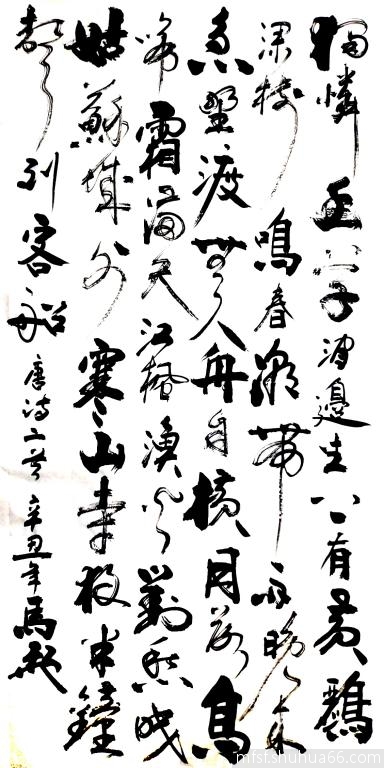 獨憐幽草澗邊生上有黃鸝
深樹鳴春潮帶雨晚來
急野渡無人舟自橫月落烏
啼霜滿天江楓漁火對愁眠
姑蘇城外寒山寺夜半鐘
聲到客船 唐詩二首 辛丑年馬
mfsf.shuhua66.com